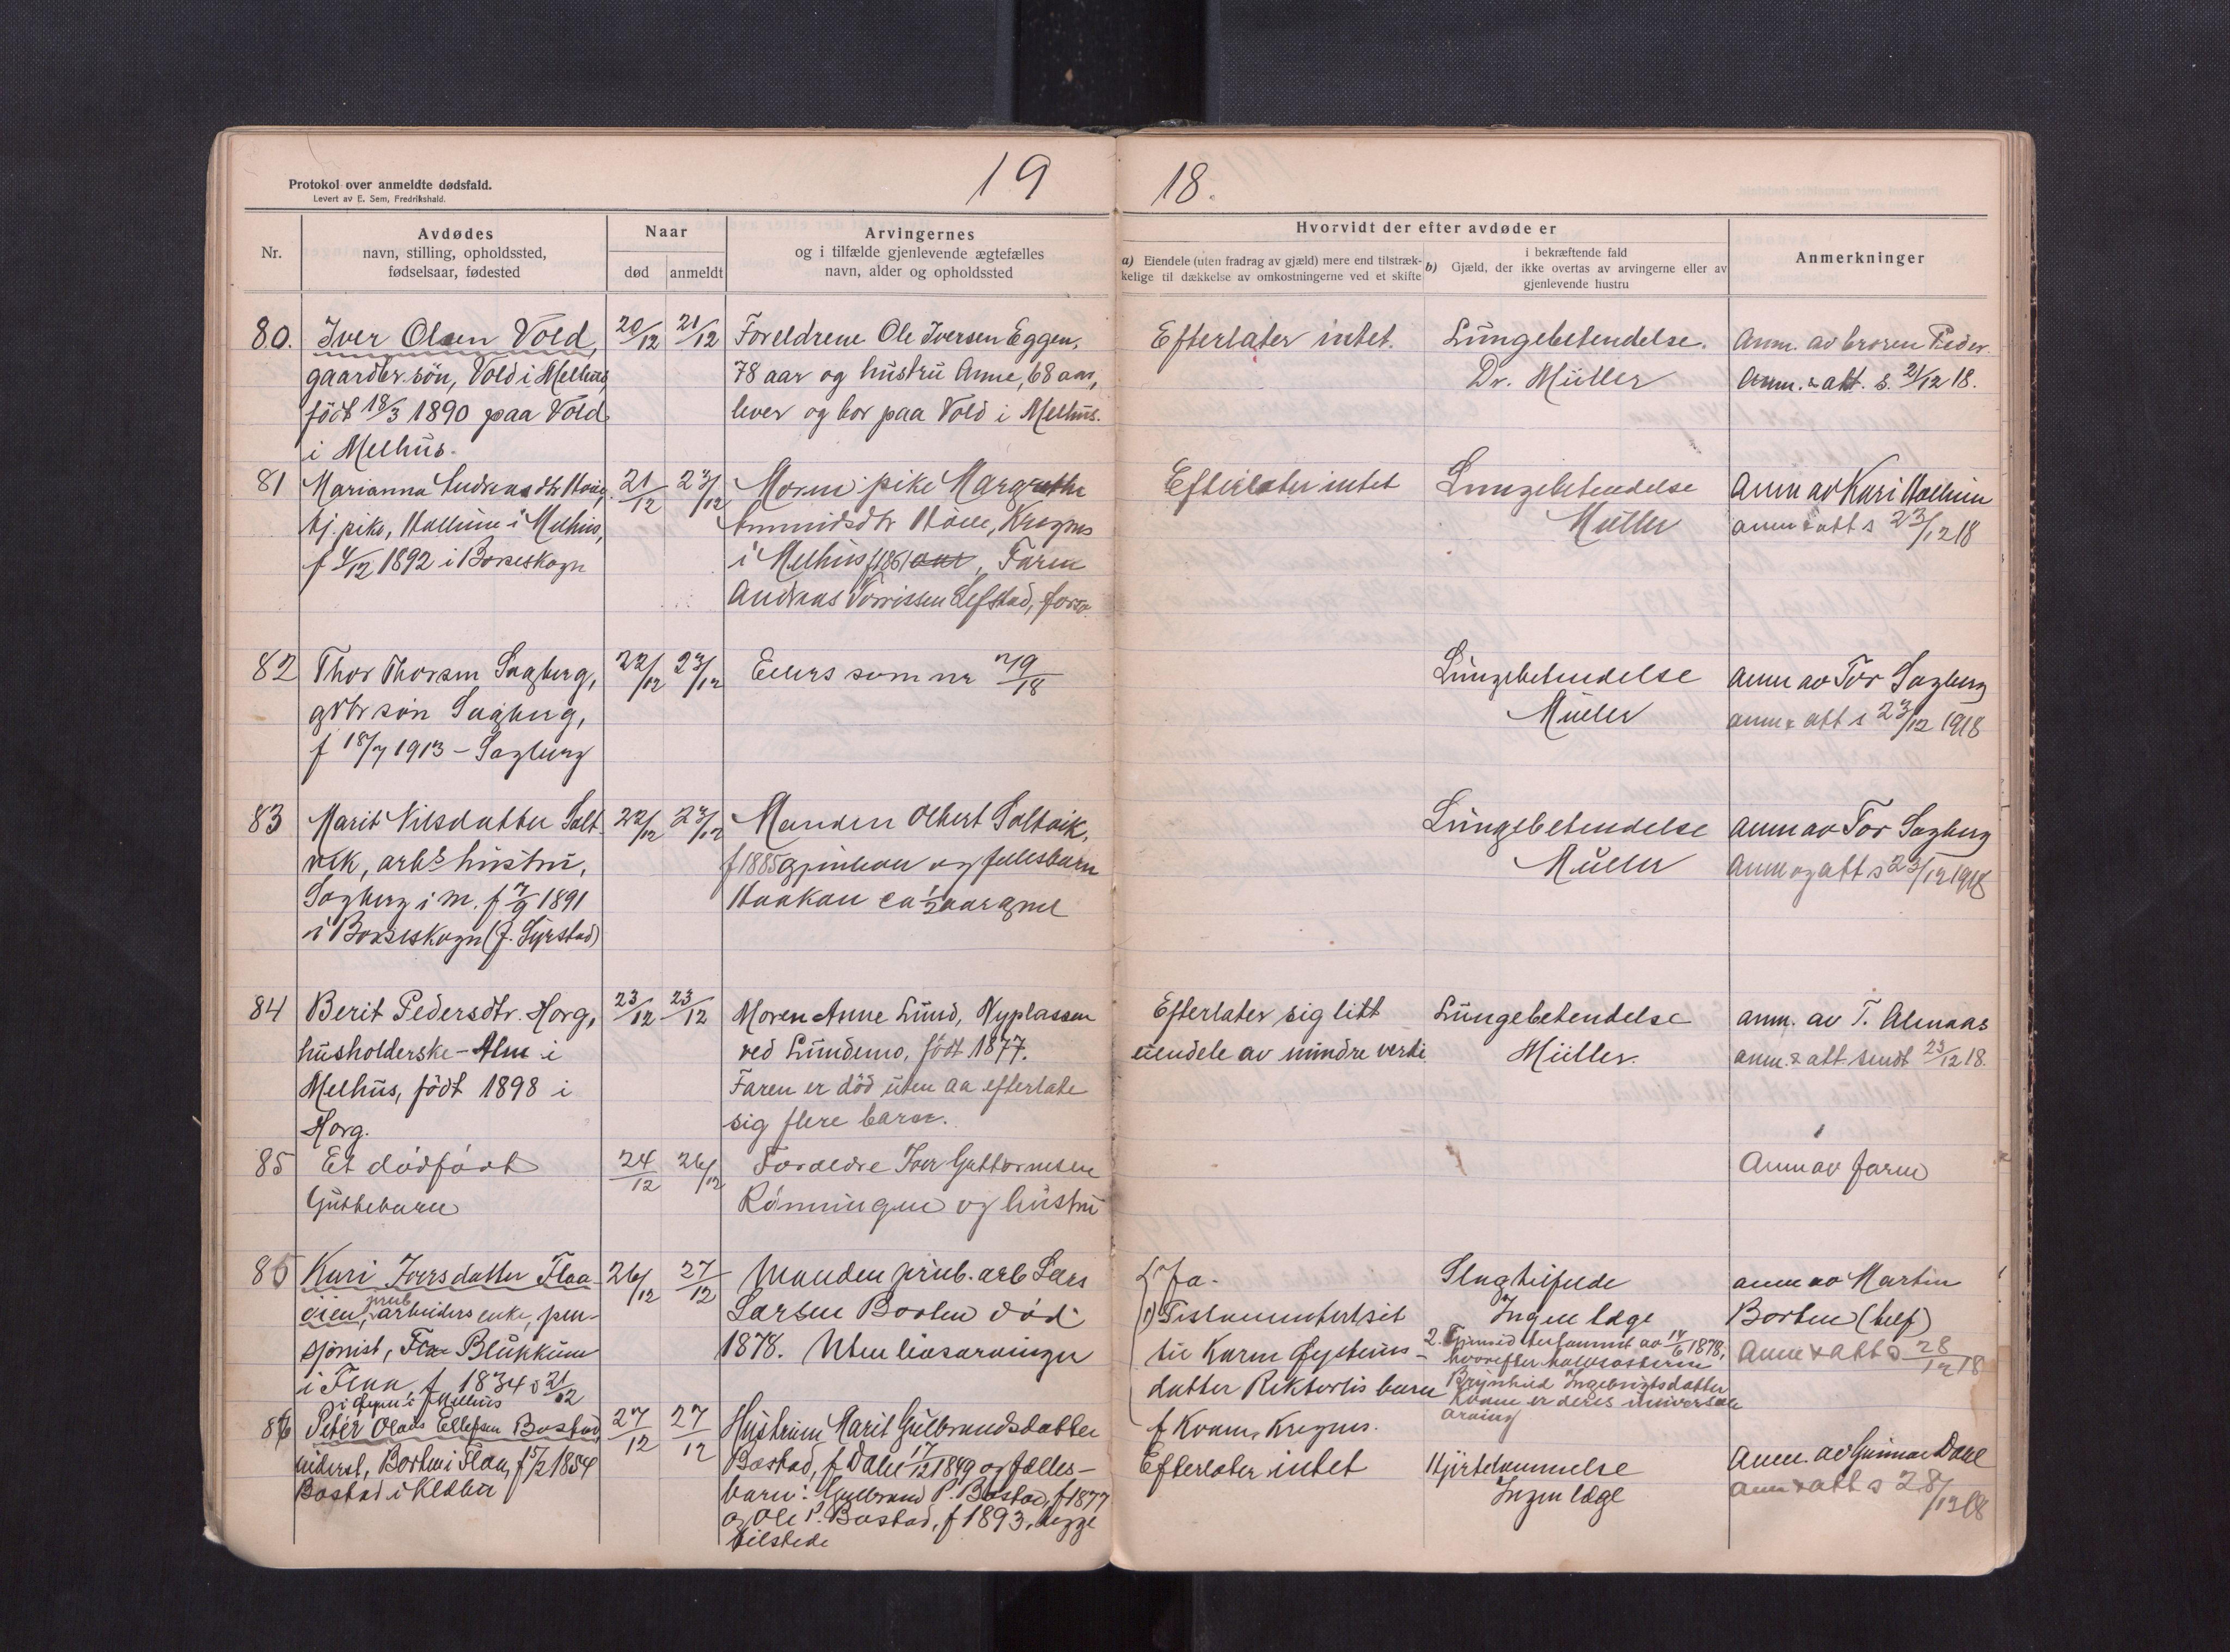 Protokol over anmeldte dødsfald.
Levert av E. Sem, Fredrikshald.
19
18.
Nr.
Avdødes
navn, stilling, opholdssted,
fødselsaar, fødested
Naar
død
anmeldt
Arvingernes
og i tilfælde gjenlevende ægtefælles
navn, alder og opholdssted
Hvorvidt der efter avdøde er
a) Eiendele (uten fradrag av gjæld) mere end tilstræk-
kelige til dækkelse av omkostningerne ved et skifte
i bekræftende fald
b) Gjæld, der ikke overtas av arvingerne eller av
gjenlevende hustru
Anmerkninger
80.
Iver Olsen Vold,
gaardbr. søn, Vold i Melhus,
født 18/3 1890 paa Vold
i Melhus.
20/12
21/12
Foreldrene Ole Iversen Eggen,
78 aar og hustru Anne, 68 aar,
lever og bor paa Vold i Melhus.
Efterlater intet.
Lungebetendelse.
Dr. Müller
Anm. av broren Peder.
Anm. & att. s. 21/12 18.
81
Marianna Andreasdtr
tj. pike, i Melhus,
f 4/12 1892 i Børseskogn
21/12
23/12
Moren pike Margrethe
Krogns
i Melhus f 1861 aar, Faren
Andreas Elfstad, forsv.
Efterlater intet
Lungebetendelse
Müller
Anm av Kari
anm & att s 23/12 18
82
Thor Thorsen Sagberg,
gdbr søn Sagberg,
f 18/7 1913 - Sagberg
22/12
23/12
Ellers som nr 79/18
Lungebetendelse
Müller
Anm av Tor Sagberg
anm & att s 23/12 1918
83
Marit Nilsdatter Salt-
vik, arb.s hustru,
Sagberg i M. f 7/9 1891
i Børseskogn (f. Syrstad)
22/12
23/12
Manden Olbert Saltvik,
f 1885 gjenlever og fellesbarn
Haakon ca 1/2 aar gml
Lungebetendelse
Müller
Anm av Tor Sagberg
Anm og att s 23/12 1918
84
Berit Pedersdtr. Horg,
husholderske - Alm i
Melhus, født 1898 i
Horg.
23/12
23/12
Moren Anne Lund, Nyplassen
ved Lundemo, født 1877.
Faren er død uten aa efterlate
sig flere barn.
Efterlater sig litt
eiendele av mindre verdi
Lungebetendelse
Müller.
anm. av T. Almaas
anm. & att. sendt 23/12 18.
85
Et dødfødt
Guttebarn
24/12
26/12
Foreldre Iver Guttormsen
Rønningen og hustru
Anm av faren
86
Kari Iversdatter Flaa-
øien, jernb. arbeiders enke, pen-
sjonist, Fla Blukkum
i Flaa, f 1834 21/12
i Melhus
26/12
27/12
Manden jernb. arb Lars
Larsen Borten død
1878. Uten livsarvinger
Ja.
1) Testamentert sit
til Karen Øysteins-
datter barn
f Kvam, Krogns.
Slagtilfelde
Ingen læge
2. Gjensidig testament av 14/6 1878,
hvorefter halvsøsteren
Brynhild Ingebrigtsdatter
Kvam er deres universal
arving
anm av Martin
Borten (telf)
Anm & att s 28/12 18
86
Peter Olaus Ellefsen Bostad,
inderst, Borten i Flaa, f 5/2 1854
Bostad i Klæbu
27/12
27/12
Hustruen Marit Gulbrandsdatter
Bostad, f Dalen 17/12 1849 og felles-
barn: Gulbrand P. Bostad, f 1877
og Ole P. Bostad, f 1893, begge
tilstede
Efterlater intet
Hjertelammelse
Ingen læge
Anm. av Gunnar Dahl
anm & att s 28/12 18